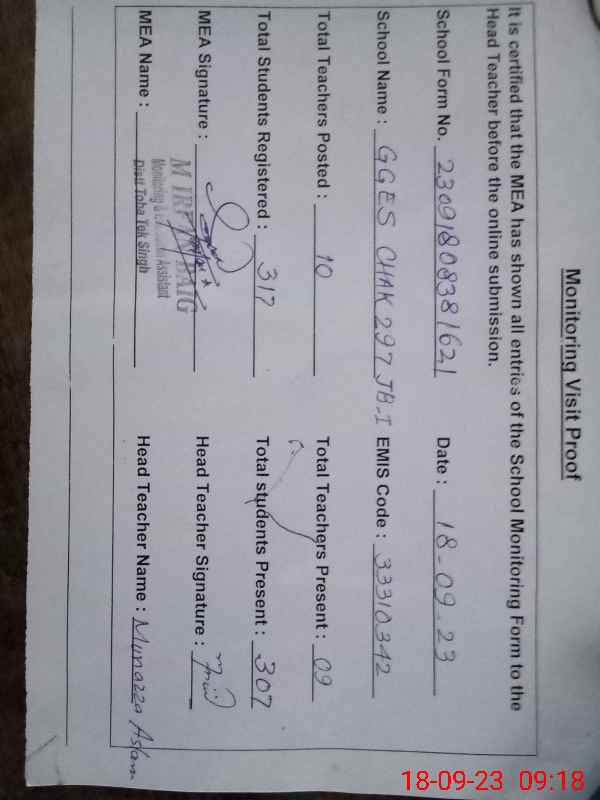 Monitoring Visit Proof
It is certified that the MEA has shown all entries of the School Monitoring Form to the
Head Teacher before the online submission.
School Form No. 23091808381621 Date : 18-09-23
School Name : GGES CHAK 297 JB-I EMIS Code : 33310342
Total Teachers Posted : 10 Total Teachers Present : 09
Total Students Registered : 317 Total students Present : 307
MEA Signature : Head Teacher Signature :
MEA Name : Head Teacher Name : Munazza Aslam
M IRFAN BAIG
Monitoring & Assistant
Distt Toba Tek Singh
18-09-23 09:18